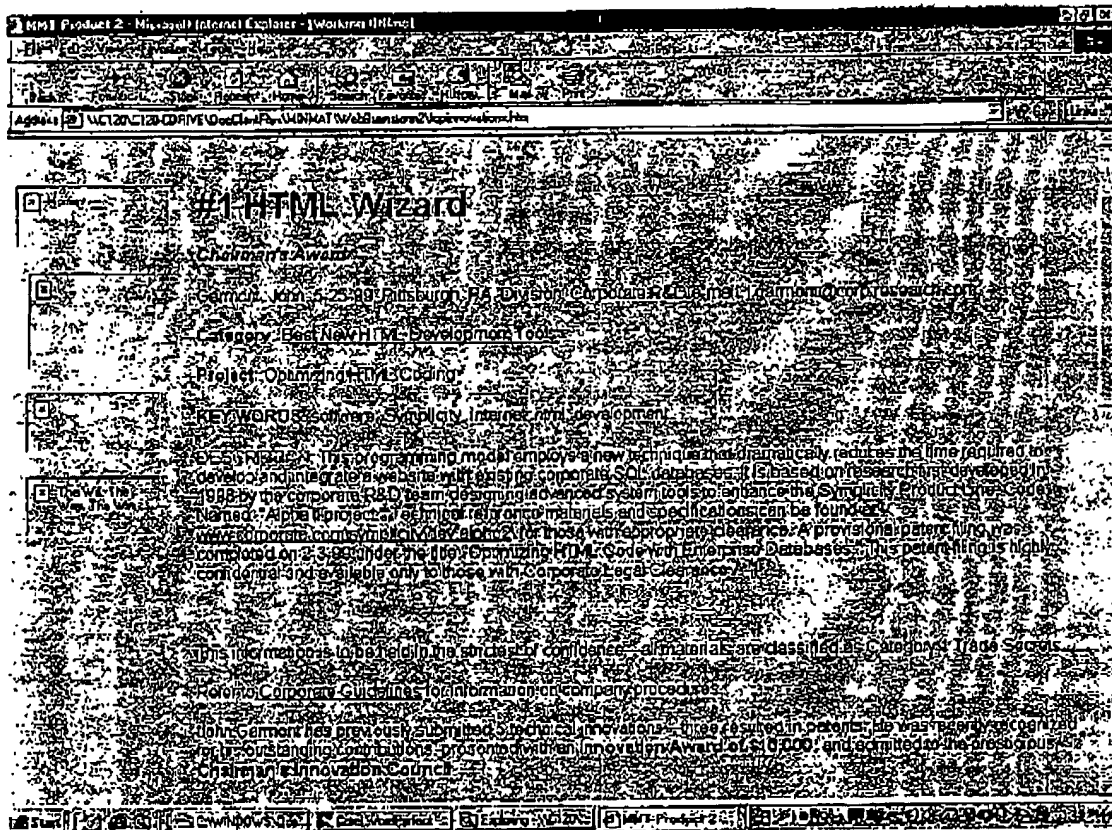 MMT Product 2 - Microsoft Internet Explorer - [Working Offline]
File Edit View Favorites Tools Help
Back Stop Refresh Home Search Favorites History Mail Print
Address Links
#1 HTML Wizard
Chairman's Award
Garmont, John 5-25-99 Pittsburgh, PA Division: Corporate R&D
Category: Best New HTML Development Tools
Project: Optimizing HTML Coding
KEY WORDS: software, Symplicity, Internet, html, development
DESCRIPTION: This programming model employs a new technique that dramatically reduces the time required to
develop and integrate a website with existing corporate SQL databases. It is based on research first developed in
1998 by the corporate R&D team designing advanced system tools to enhance the Symplicity Product Line, Code
Named: "Alpha II project." Technical reference materials and specifications can be found at
(for those with appropriate clearance. A provisional patent filing was
completed on 2-3-99 under the title "Optimizing HTML Code with Enterprise Databases." This patent filing is highly
confidential and available only to those with Corporate Legal Clearance.
This information is to be held in the strictest of confidence - all materials are classified as Category I Trade Secrets.
Refer to Corporate Guidelines for information on company procedures.
John Garmont has previously submitted 5 technical innovations - three resulted in patents. He was recently recognized
for his outstanding contributions, presented with an Innovation Award of $10,000, and admitted to the prestigious
Chairman's Innovation Council.
Start C:\WINDOWS\ Exploring MMT Product 2